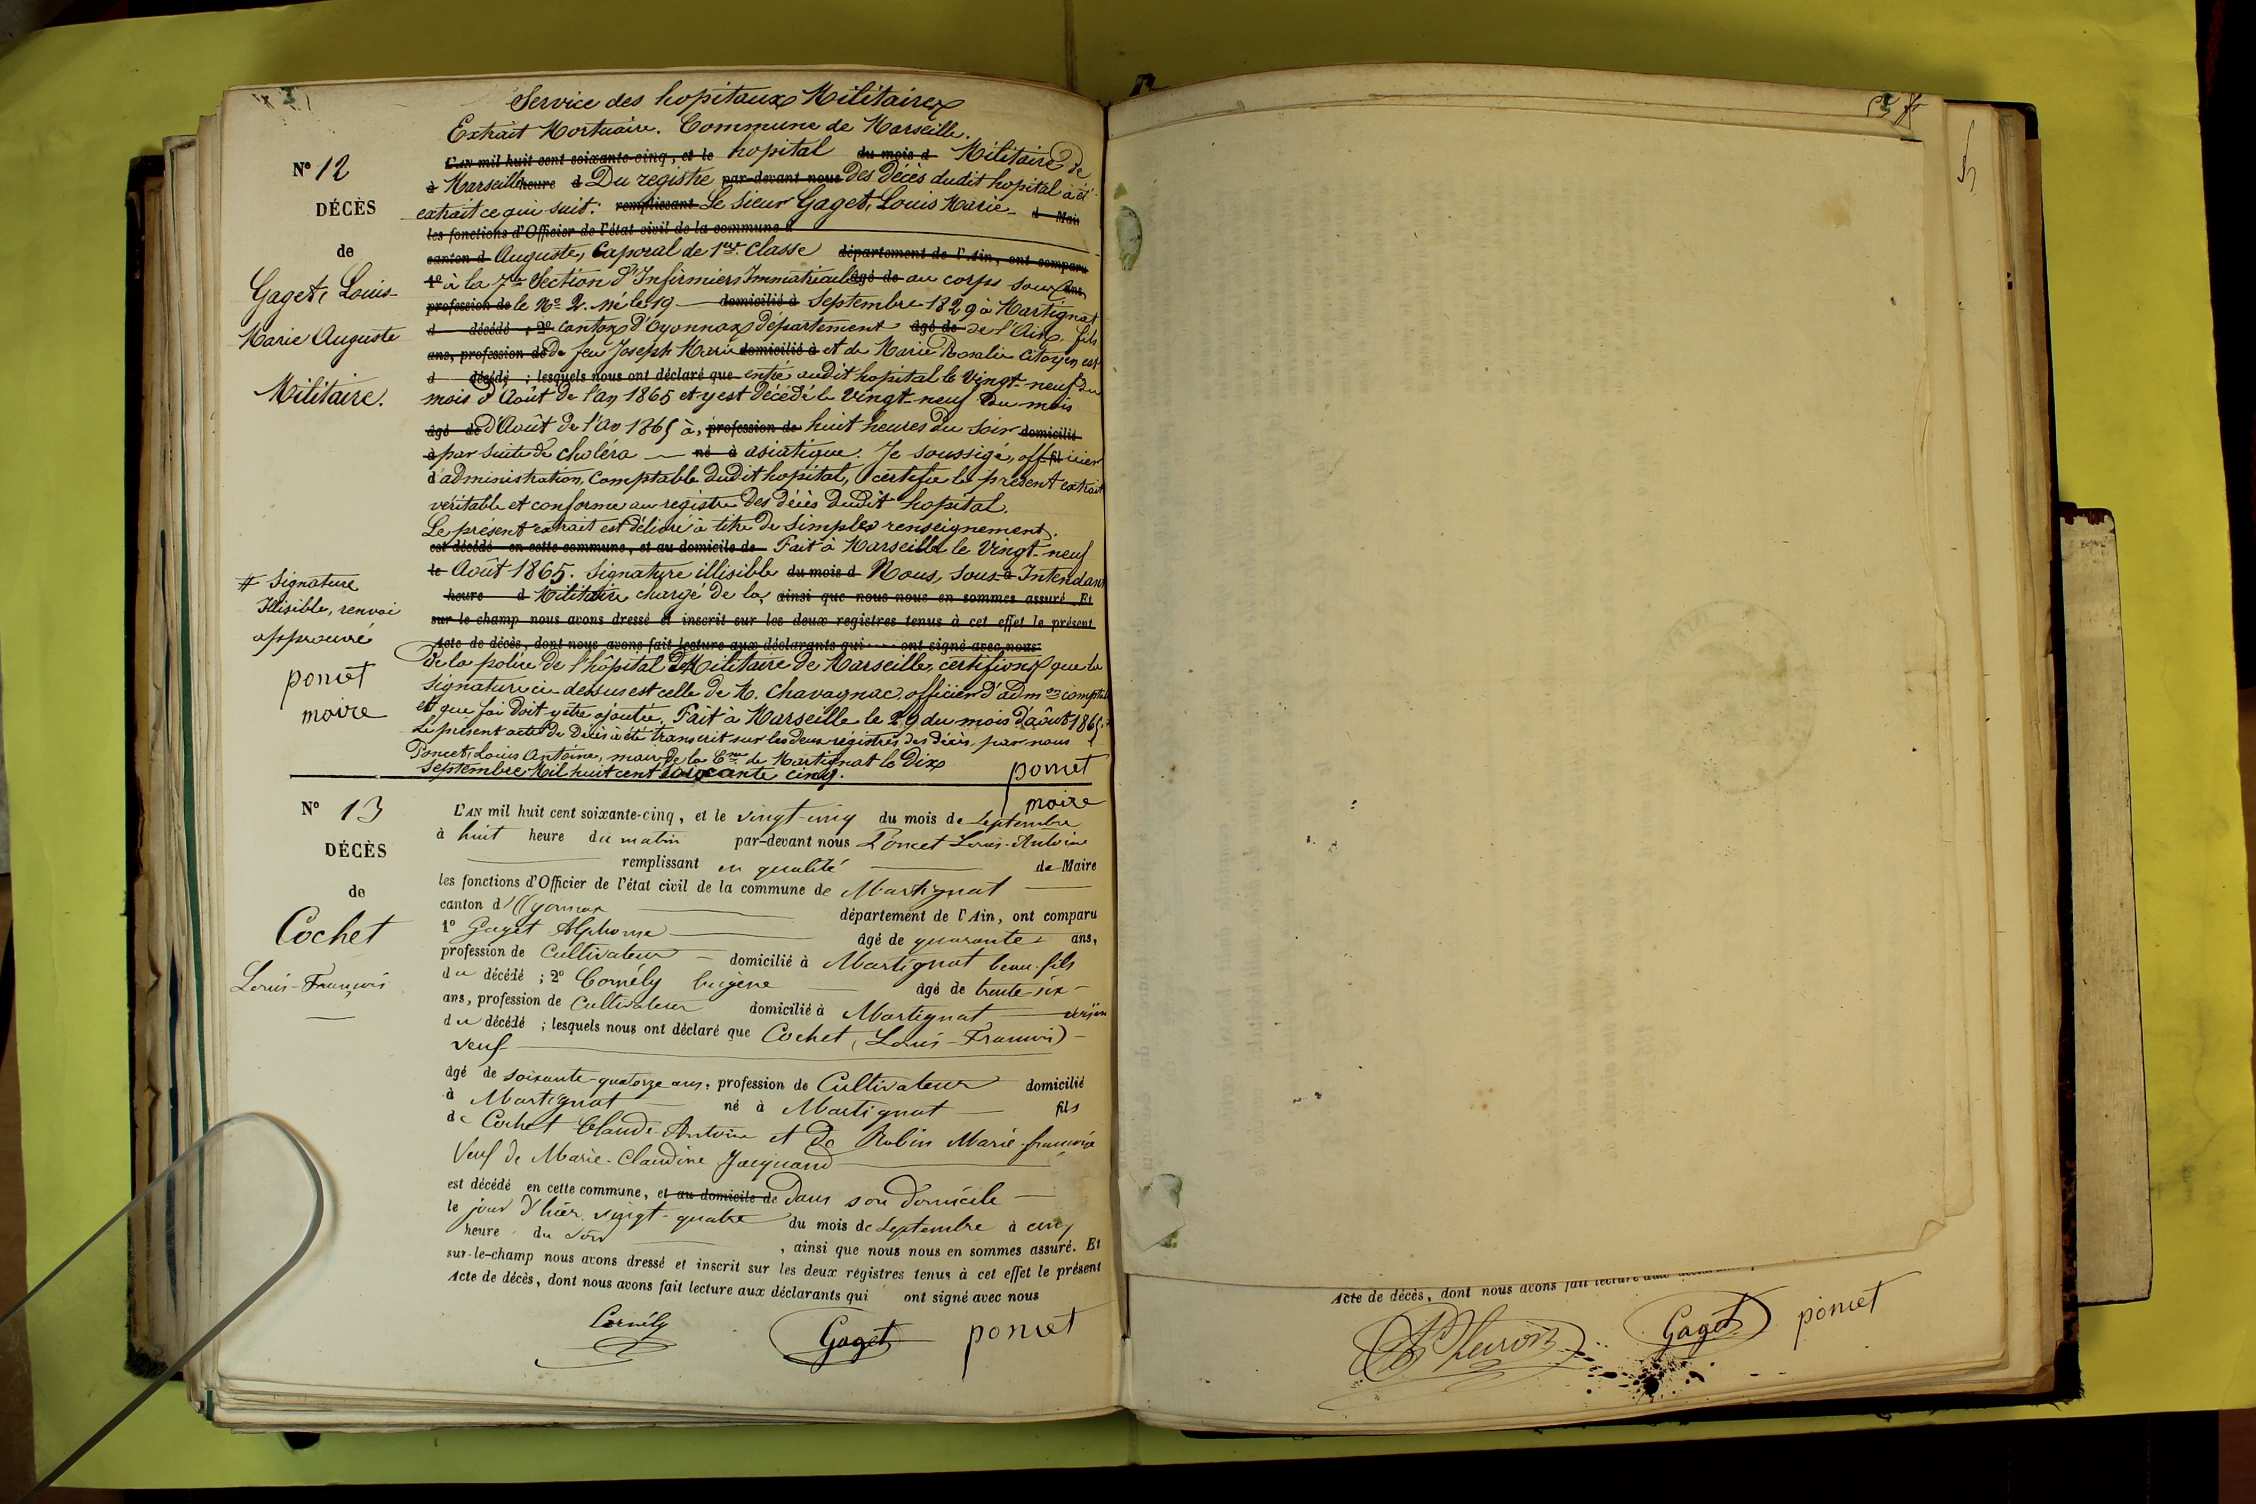 Service des hopitaux Militaires
Extrait Mortuaire. Commune de Marseille.
L'AN mil huit cent soixante-cinq, et le hopital du mois d Militaire de
à Marseille heure d Du registre par-devant nous des décès dudit hopital à ét
extrait ce qui suit: remplissant Le Sieur Gaget, Louis Marie d Mai
les fonctions d'Officier de l'état civil de la commune d
canton d Auguste, Caporal de 1re Classe département de l'Ain, ont comparu
1º à la 7e Section d'Infirmiers Immatriculé âgé de au corps sous ans,
profession de le Nº 2. né le 19 domicilié à Septembre 1829 à Martignat
d décédé ; 2º Canton d'Oyonnax département âgé de de l'Ain fils
ans, profession de De feu Joseph Marie domicilié à et de Marie Rosalie Citoyen est
d décédé ; lesquels nous ont déclaré que entré audit hopital le Vingt-neuf du
mois d'Août de l'an 1865 et y est décédé le Vingt-neuf du mois
âgé de d'Août de l'an 1865 à, profession de huit heures du Soir domicilié
à par suite de choléra né à asiatique. Je soussigé, off fil icier
d'administration, Comptable dudit hopital, certifie le présent extrait
véritable et conforme au registre des décès dudit hopital.
Le présent extrait est délivré à titre de Simples renseignement.
est décédé en cette commune, et au domicile de Fait à Marseille le Vingt-neuf
le Août 1865. Signature illisible du mois d Nous, Sous à Intendant
heure d Militaire chargé de la, ainsi que nous nous en sommes assuré. Et
sur-le-champ nous avons dressé et inscrit sur les deux registres tenus à cet effet le présent
Acte de décès, dont nous avons fait lecture aux déclarants qui ont signé avec nous.
de la police de l'hôpital Militaire de Marseille, certifions que la
Signature ci-dessus est celle de M. Chavagnac, officier d'adm on comptable
et que foi doit y être ajoutée. Fait à Marseille le 29 du mois d'août 1865.
Le présent acte de Décès à été transcrit sur les deux registres des décès, par nous
Poncet, Louis Antoine, maire de la Cne de Martignat le Dix
Septembre Mil huit cent soixante cinq.
poncet
maire
Nº 12
DÉCÈS
de
Gaget, Louis-
Marie Auguste
Militaire.
# Signature
Illisible, renvoi
approuvé
poncet
maire
Nº 13
DÉCÈS
de
Cochet
Louis-François
L'AN mil huit cent soixante-cinq, et le vingt-cinq du mois de Septembre
à huit heure du matin par-devant nous Poncet Louis-Antoine
remplissant en qualité de Maire
les fonctions d'Officier de l'état civil de la commune de Martignat
canton d'Oyonnax département de l'Ain, ont comparu
1º Gaget Alphonse âgé de quarante ans,
profession de Cultivateur domicilié à Martignat beau-fils
du décédé ; 2º Cornély Eugène âgé de trente-six
ans, profession de Cultivateur domicilié à Martignat voisin
du décédé ; lesquels nous ont déclaré que Cochet (Louis-François)
veuf
âgé de soixante-quatorze ans, profession de Cultivateur domicilié
à Martignat né à Martignat fils
de Cochet Claude-Antoine et de Robin Marie-françoise
Veuf de Marie-Claudine Jacquand
est décédé en cette commune, et au domicile de dans son domicile
le jour d'hier vingt-quatre du mois de Septembre à cinq
heure du soir , ainsi que nous nous en sommes assuré. Et
sur-le-champ nous avons dressé et inscrit sur les deux régistres tenus à cet effet le présent
Acte de décès, dont nous avons fait lecture aux déclarants qui ont signé avec nous
Cornély Gaget poncet
Acte de décès, dont nous avons fait lecture aux
Gaget poncet